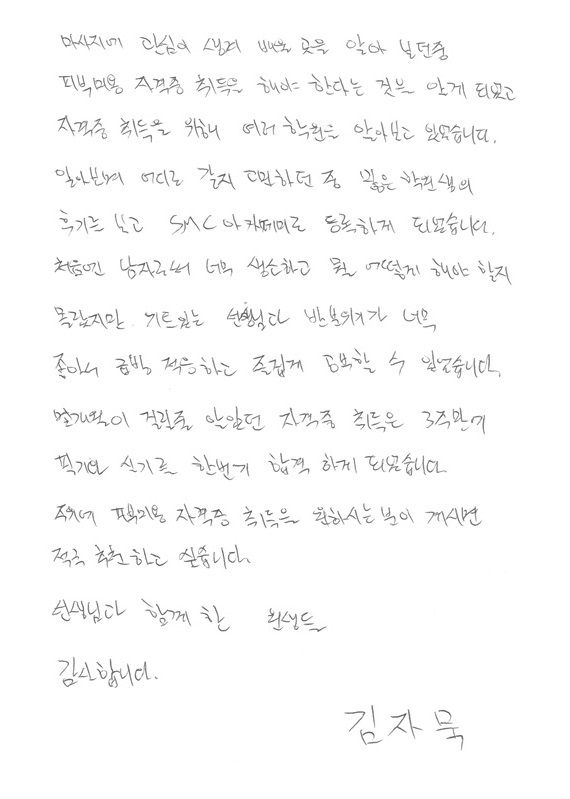 마사지에 관심이 생겨 배울 곳을 알아 보던중
피부미용 자격증 취득을 해야 한다는 것을 알게 되었고
자격증 취득을 위해 여러 학원을 알아보고 있었습니다.
알아보며 어디로 갈지 고민하던 중 많은 학원생의
후기를 보고 SMC아카페미로 등록하게 되었습니다.
처음엔 남자로써 너무 생소하고 뭘 어떻게 해야 할지
몰랐지만 기트있는 선생님과 반분위기가 너무
좋아서 금방 적응하고 즐겁게 공부할 수 있었습니다.
몇개월이 걸릴줄 알았던 자격증 취득은 3주만에
필기와 실기를 한번에 합격 하게 되었습니다.
주위에 피부미용 자격증 취득을 원하시는 분이 계시면
적극 추천하고 싶습니다.
선생님과 함께 한 원생들
감사합니다.
김자묵